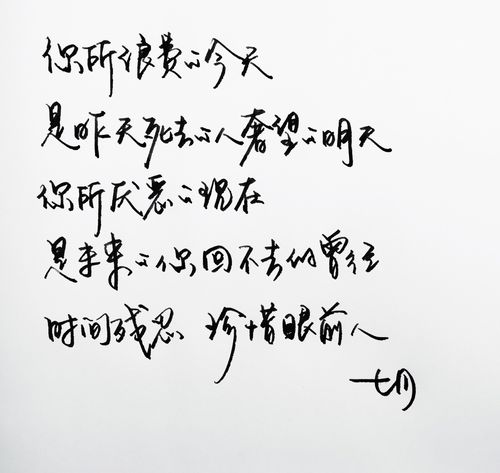 你所浪费的今天
是昨天死去的人奢望的明天
你所厌恶的现在
是未来的你回不去的曾经
时间残忍 珍惜眼前人
七月